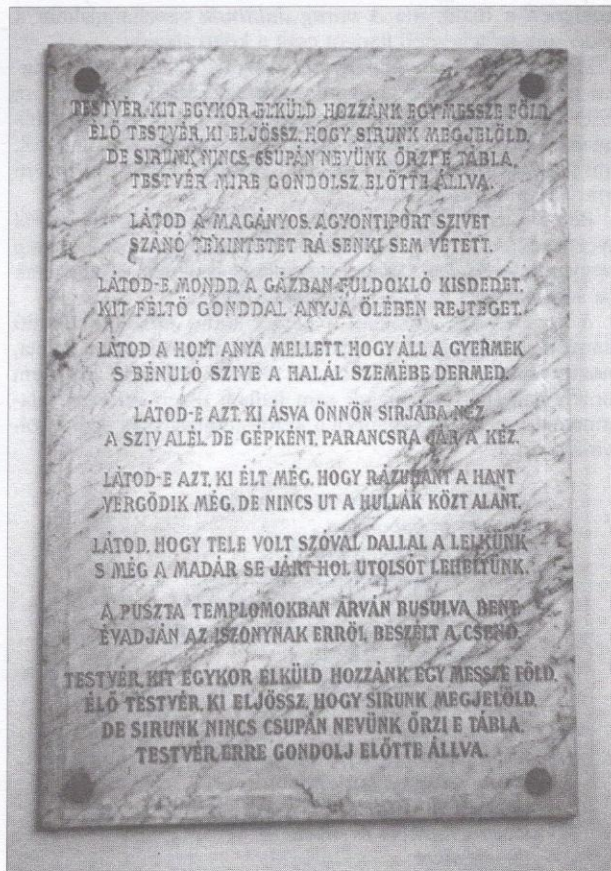 TESTVÉR, KIT EGYKOR ELKÜLD HOZZÁNK EGY MESSZE FÖLD,
ÉLŐ TESTVÉR, KI ELJÖSSZ, HOGY SIRUNK MEGJELÖLD,
DE SIRUNK NINCS CSUPÁN NEVÜNK ŐRZI E TÁBLA,
TESTVÉR MIRE GONDOLSZ ELŐTTE ÁLLVA.
LÁTOD A MAGÁNYOS, AGYONTIPORT SZIVET
SZÁNÓ TEKINTETET RÁ SENKI SEM VETETT.
LÁTOD-E, MONDD, A GÁZBAN FULDOKLÓ KISDEDET,
KIT FÉLTŐ GONDDAL ANYJA ÖLÉBEN REJTEGET.
LÁTOD A HOLT ANYA MELLETT, HOGY ÁLL A GYERMEK
S BÉNULÓ SZIVE A HALÁL SZEMÉBE DERMED.
LÁTOD-E AZT, KI ÁSVA ÖNNÖN SIRJÁBA NÉZ
A SZIV ALÉL DE GÉPKÉNT, PARANCSRA JÁR A KÉZ.
LÁTOD-E AZT, KI ÉLT MÉG, HOGY RÁZUHANT A HANT
VERGŐDIK MÉG, DE NINCS UT A HULLÁK KÖZT ALANT.
LÁTOD, HOGY TELE VOLT SZÓVAL DALLAL A LELKÜNK
S MÉG A MADÁR SE JÁRT HOL UTOLSÓT LEHELTÜNK.
A PUSZTA TEMPLOMOKBAN ÁRVÁN BUSULVA BENT
ÉVADJÁN AZ ISZONYNAK ERRŐL BESZÉLT A CSEND.
TESTVÉR, KIT EGYKOR ELKÜLD HOZZÁNK EGY MESSZE FÖLD,
ÉLŐ TESTVÉR, KI ELJÖSSZ, HOGY SIRUNK MEGJELÖLD,
DE SIRUNK NINCS CSUPÁN NEVÜNK ŐRZI E TÁBLA,
TESTVÉR, ERRE GONDOLJ ELŐTTE ÁLLVA.